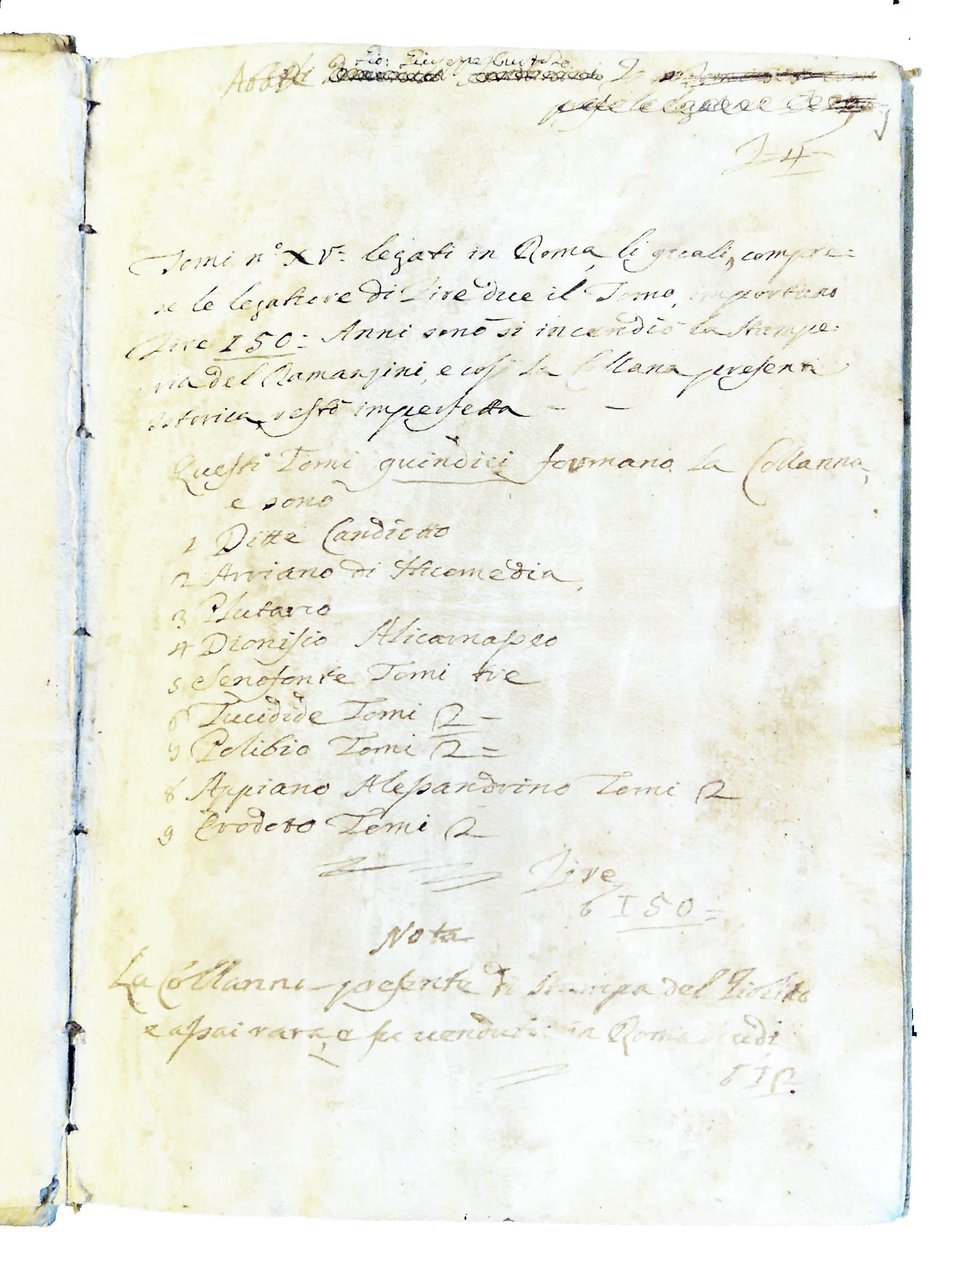 Abbe Gio: Giuseppe
4
Tomi n.° XV: legati in Roma, li quali, compre=
se le legature di Lire due il Tomo, importano
Lire 150= Anni sono si incendiò la Stampe=
ria del Ramanzini, e così la Collana presente
istorica restò imperfetta — —
Questi Tomi quindici formano la Collanna,
e sono
1 Ditte Candiotto
2 Arriano di Nicomedia
3 Plutarco
4 Dionisio Alicarnasseo
5 Senofonte Tomi tre
6 Tucidide Tomi 2 –
7 Polibio Tomi 2 =
8 Appiano Alessandrino Tomi 2
9 Erodoto Tomi 2
Lire
150=
Nota
La Collanna presente di stampa del Giolito
e assai rara e fu venduta in Roma